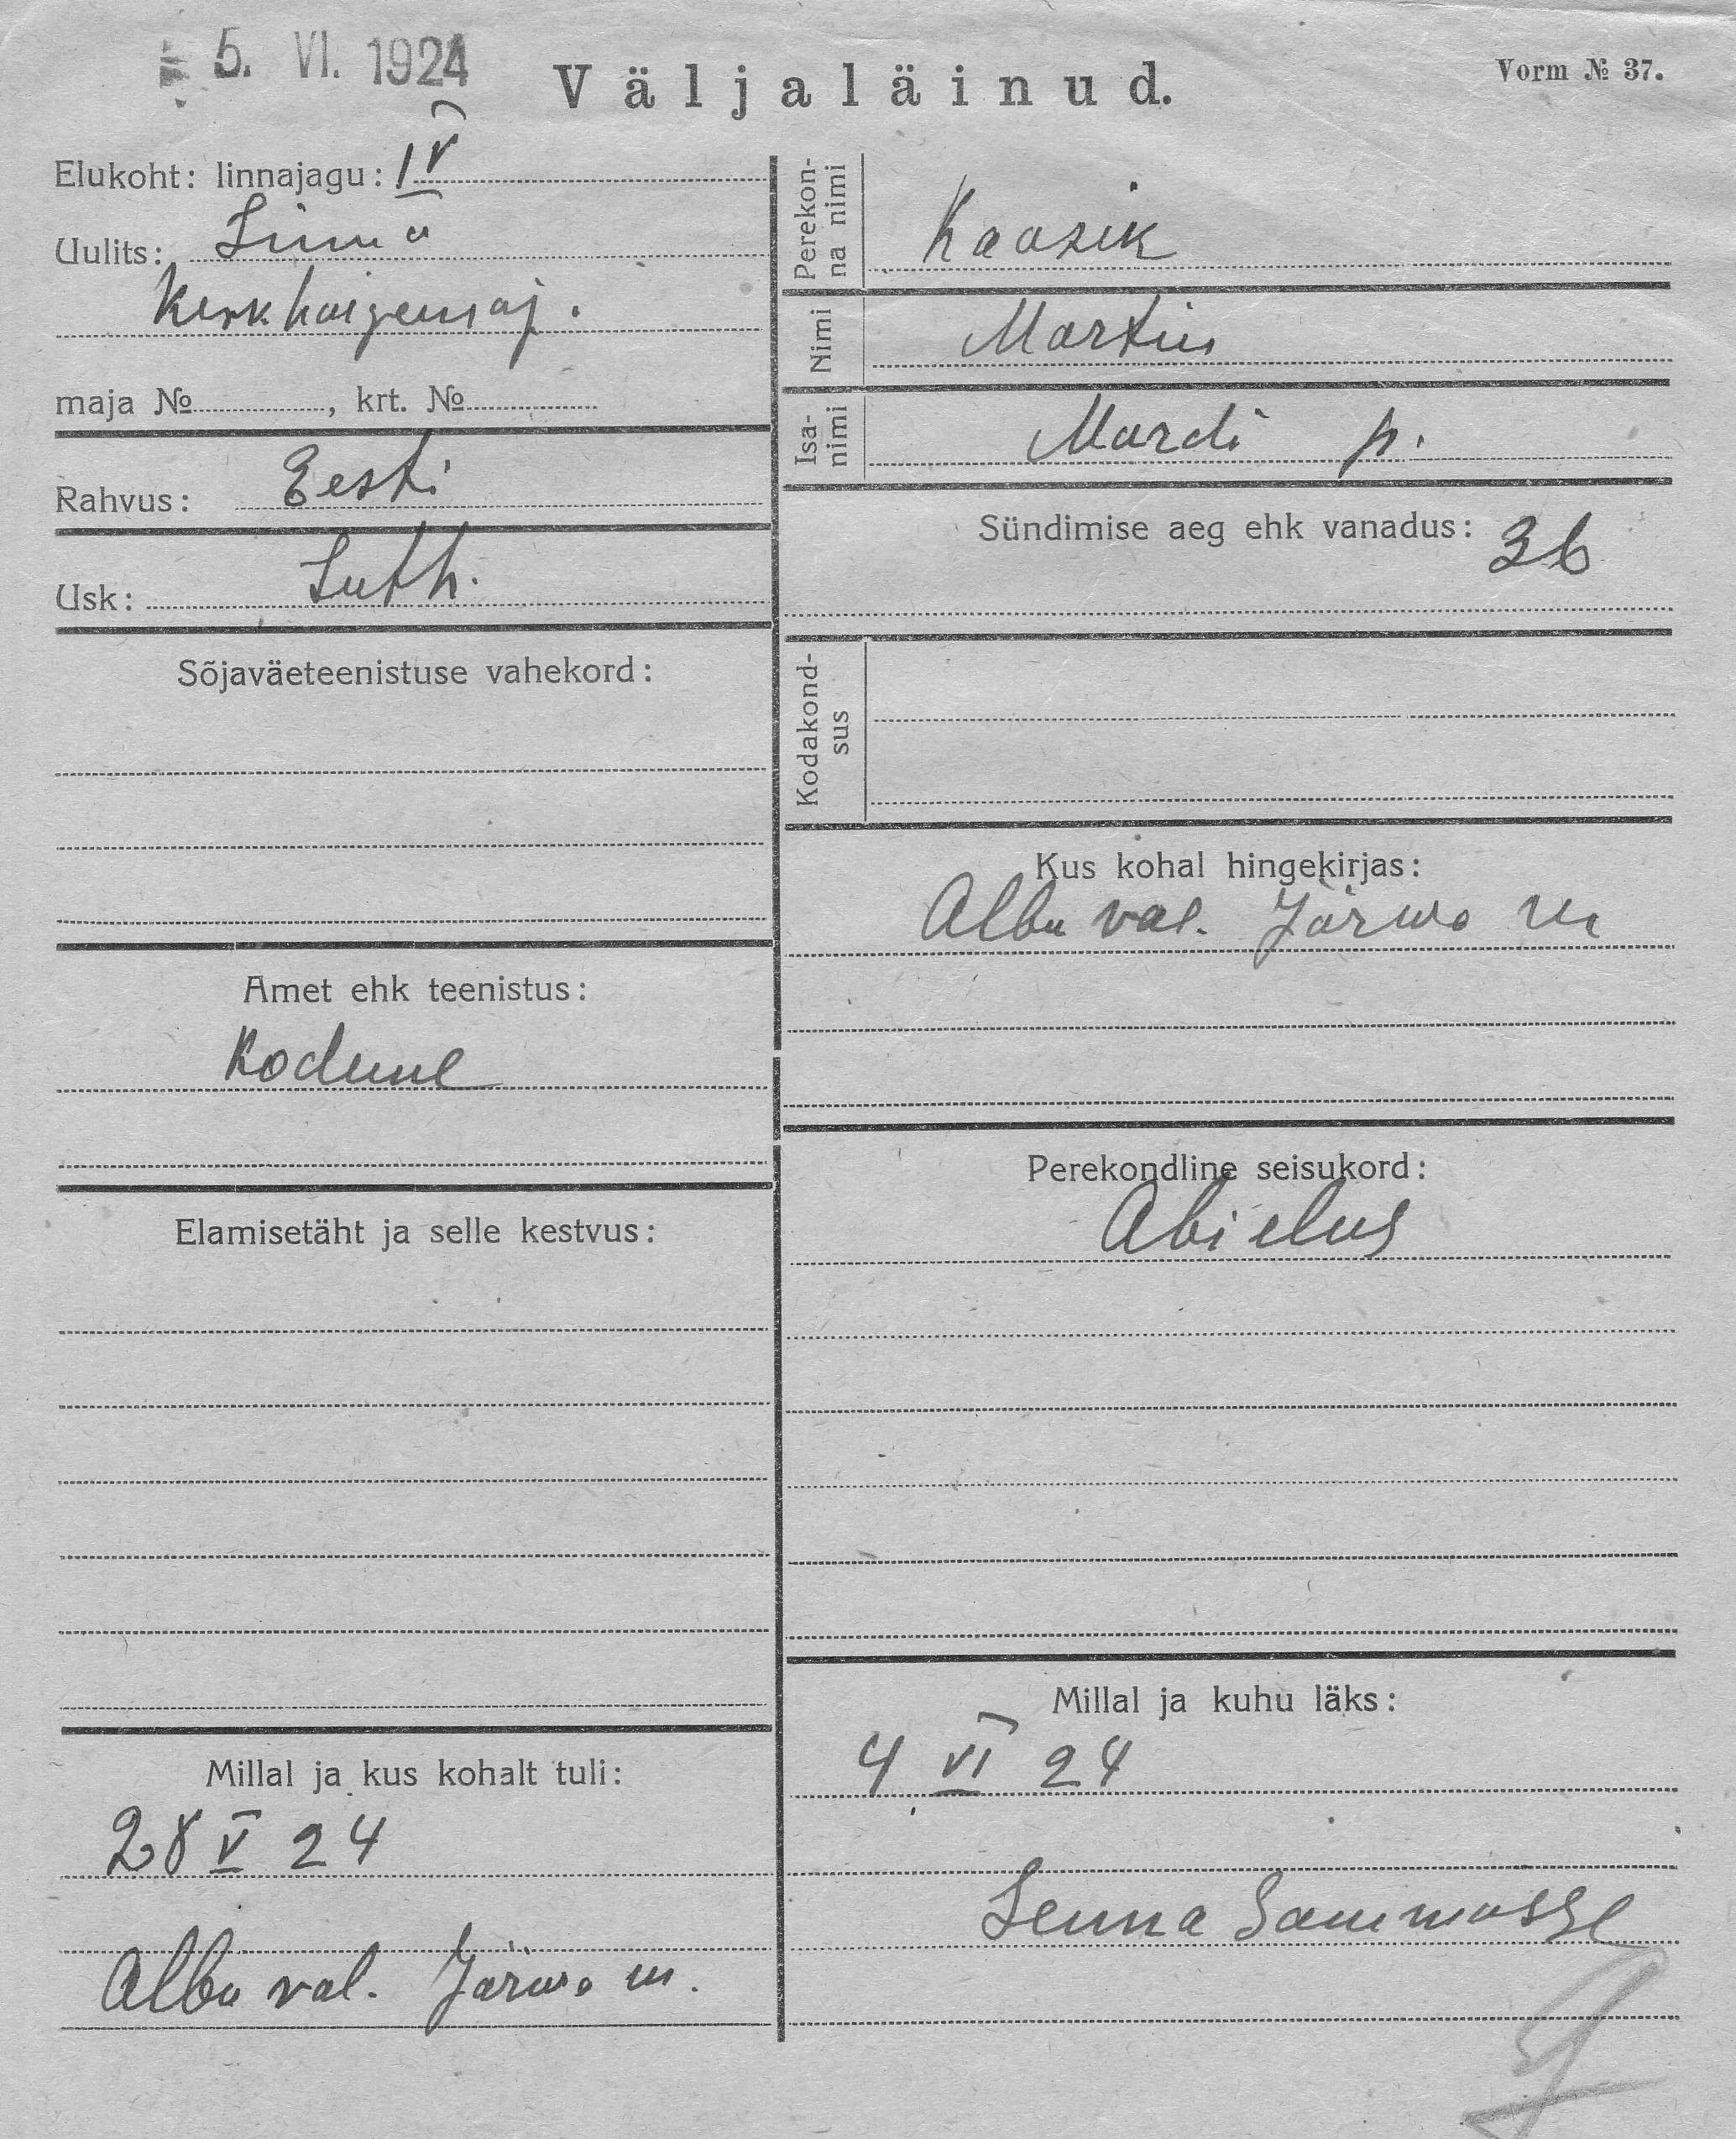 5. VI. 1924
Väljaläinud.
Vorm № 37.
Elukoht: linnajagu: IV
Uulits: Linna
Keskhaigemaj.
maja № , krt. №
Rahvus: Eesti
Usk: Luth.
Sõjaväeteenistuse vahekord:
Amet ehk teenistus:
Kodune
Elamisetäht ja selle kestvus:
Millal ja kus kohalt tuli:
28 V 24
Albu val. Järwa m.
Perekon-
na nimi
Kaasik
Nimi
Martin
Isa-
nimi
Mardi p.
Sündimise aeg ehk vanadus: 36
Kodakond-
sus
Kus kohal hingekirjas:
Albu val. Järwa m
Perekondline seisukord:
Abielus
Millal ja kuhu läks:
4 VI 24
Senna Sammasse